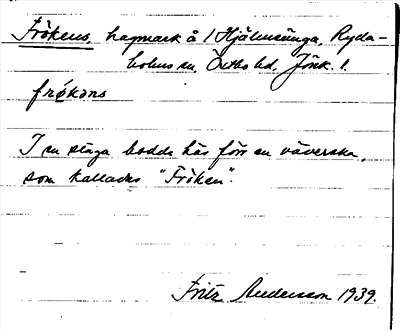 Frökens, hagmark å 1 Hjälmsänga, Ryda-
holms sn, Östbo hd, Jönk. l.
frø̀kəns
I en stuga bodde här förr en väverska,
som kallades "Fröken".
Fritz Andersson 1939.